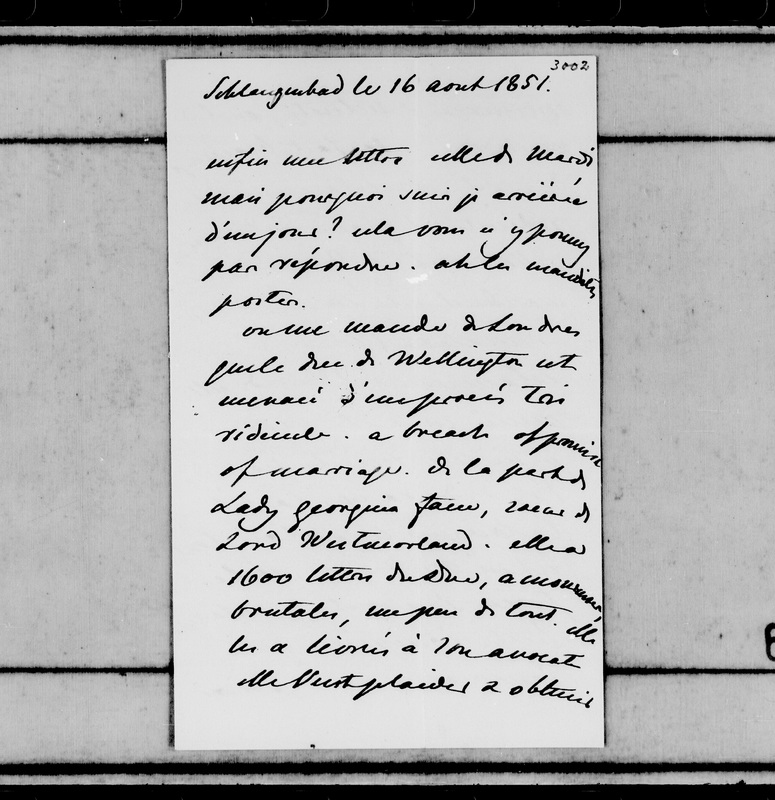 3002
Schlangenbad le 16 aout 1851.
enfin une lettre celle de Mardi
mais pourquoi suis je arriérée
d'un jour? cela vous n'y pouvez
pas répondre. ah les maudites
postes.
on me mande de Londres
que le duc de Wellington est
menacé d'un procès très
ridicule. a breach of promise
of marriage. de la part de
Lady georgina fane, soeur de
Lord Westmorland. elle a
1600 lettres du duc, amoureuses,
brutales, un peu de tout. elle
les a livrés à son avocat
elle veut plaider & obtenir